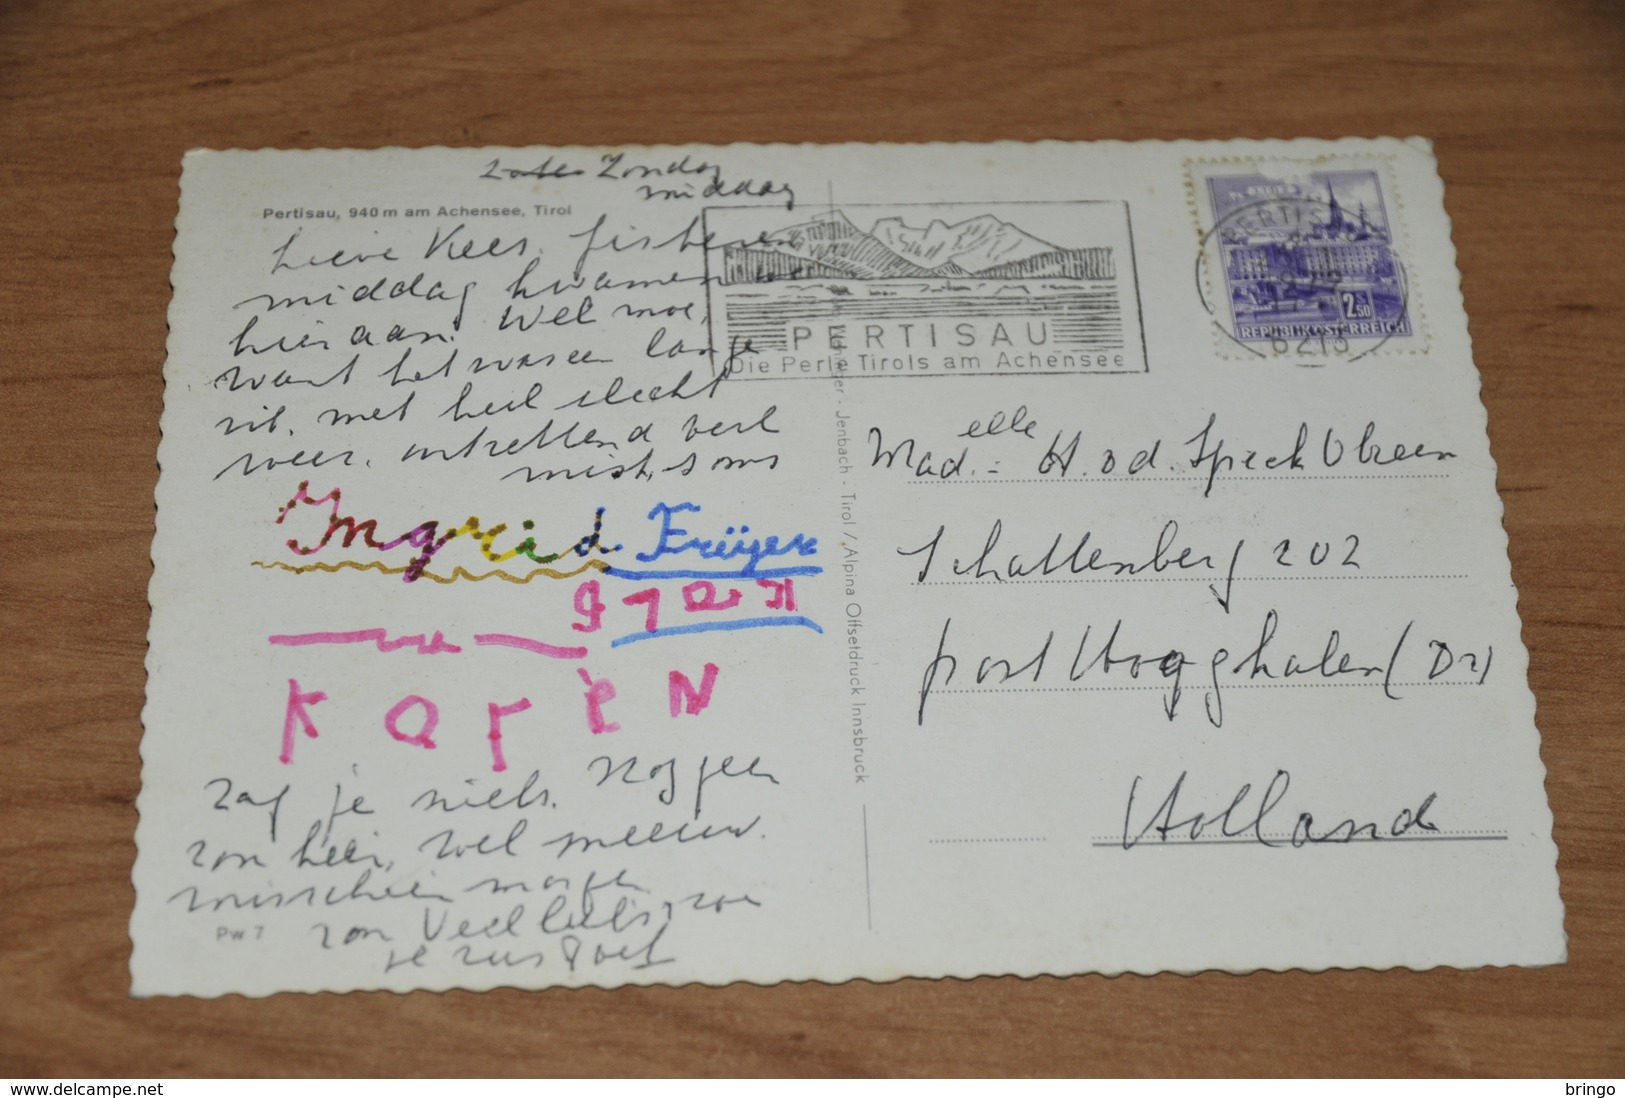 Zondag
middag
Pertisau, 940 m am Achensee, Tirol
Lieve Kees, gisteren
middag kwamen we
hier aan. Wel moe,
want het was een lange
rit. met heel slecht
weer. ontzettend veel
mist, soms
Ingrid Früger
KARiN
Zag je niets. Nog geen
zon hier, wel sneeuw.
misschien morgen
zon Veel liefs, zoe
je zus Poes
Pw 7
Wohlger - Jenbach - Tirol / Alpina Offsetdruck Innsbruck
PERTISAU
Die Perle Tirols am Achensee
PERTISAU
6213
2.50
REPUBLIK ÖSTERREICH
Madelle H. v d. Speck Obreen
Schattenberg 202
post Hooghalen (Dr)
Holland
delcampe.net
bringo